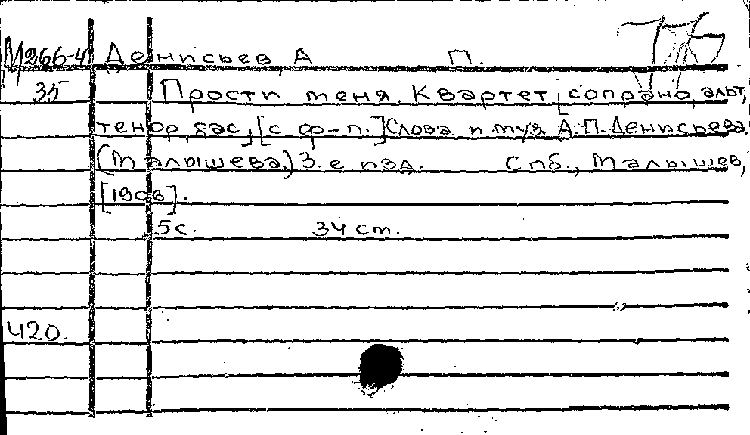 М266-4 Денисьев, А П.
35 Прости меня. Квартет [сопрано, альт,
тенор, бас,] [с ф-п.] Слова и муз. А.П. Денисьева.
(Малышева.) 3-е изд. Спб., Малышев,
[1908].
5с. 34 ст.
420.